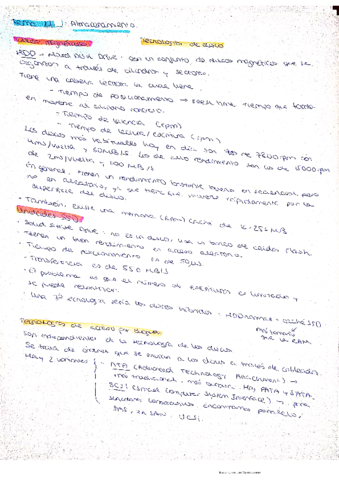 Tema 14: Almacenamiento.
Discos magnéticos
Tecnologías de disco
HDD - Hard Disk Drive: son un conjunto de discos magnéticos que se
organizan a través de cilindros y sectores.
Tiene una cabeza lectora la cual tiene:
- Tiempo de posicionamiento → seek time. Tiempo que tarda
en moverse al cilindro correcto.
- Tiempo de latencia (rpm)
- Tiempo de lectura/escritura (rpm)
Los discos más habituales hoy en día son los de 7200 rpm con
4ms/vuelta y 50MB/s los de alto rendimiento son los de 15000 rpm
de 2ms/vuelta y 100 MB/s
En general, tienen un rendimiento bastante bueno en secuencial, pero
no en aleatorio, ya que tiene que moverse rápidamente por la
superficie del disco.
- También, existe una memoria (RAM) caché de 16-256 MB
Unidades SSD
- Solid State Drive: no es un disco, usa un banco de celdas flash.
- Tienen un buen rendimiento en acceso aleatorio.
- Tiempo de posicionamiento es de 50µs.
- Transferencia es de 550 MB/s
- El problema es que el número de escrituras es limitado y
se puede reescribir.
Una 3ª tecnología sería los discos híbridos: HDD normal + caché SSD
más barata
que la RAM.
Tecnologías de acceso por bloque
Son independientes de la tecnología de los discos
Se trata de órdenes que se envían a los discos a través de cableado.
Hay 2 versiones
- ATA (Advanced Technology Attachment) →
más tradicional, más común. Hay PATA y SATA.
- SCSI (Small Computer System Interface) → para
servidores
SAS, en SAN